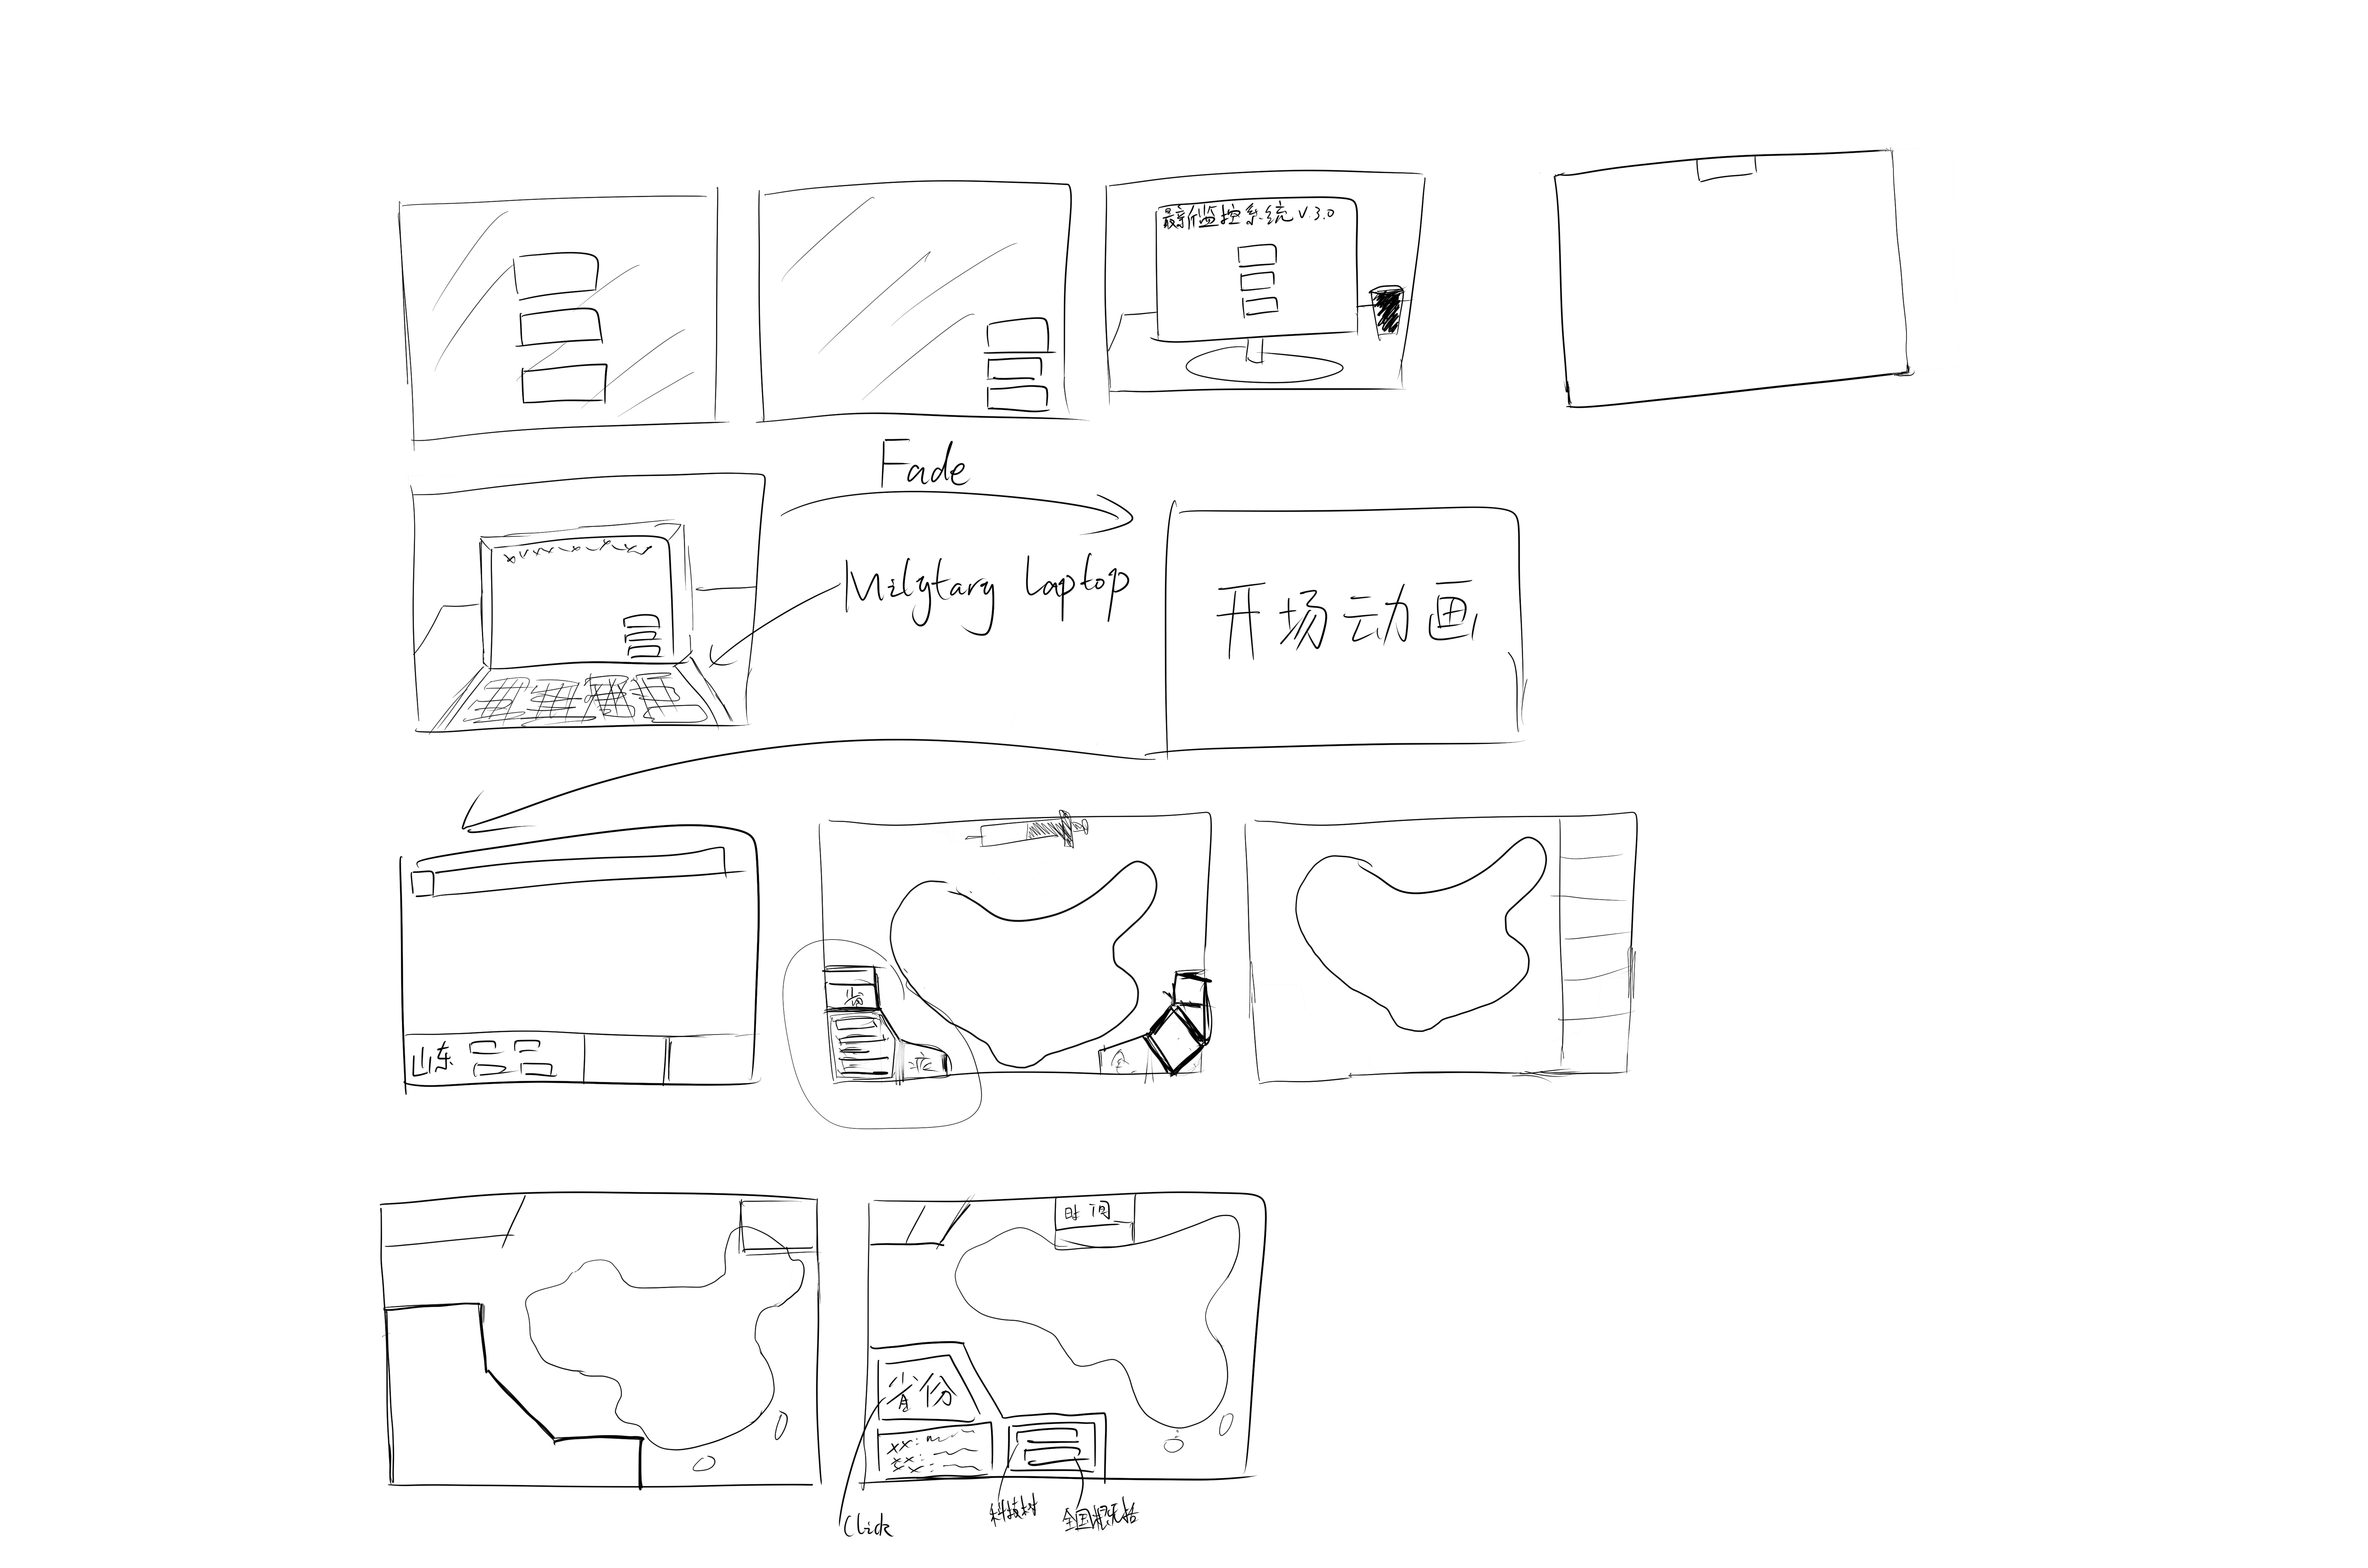 最新监控系统 V.3.0
Fade
Milytary laptop
开场动画
山东
省
时间
省份
xx:
xx:
xx:
Click
科技树
全国概括